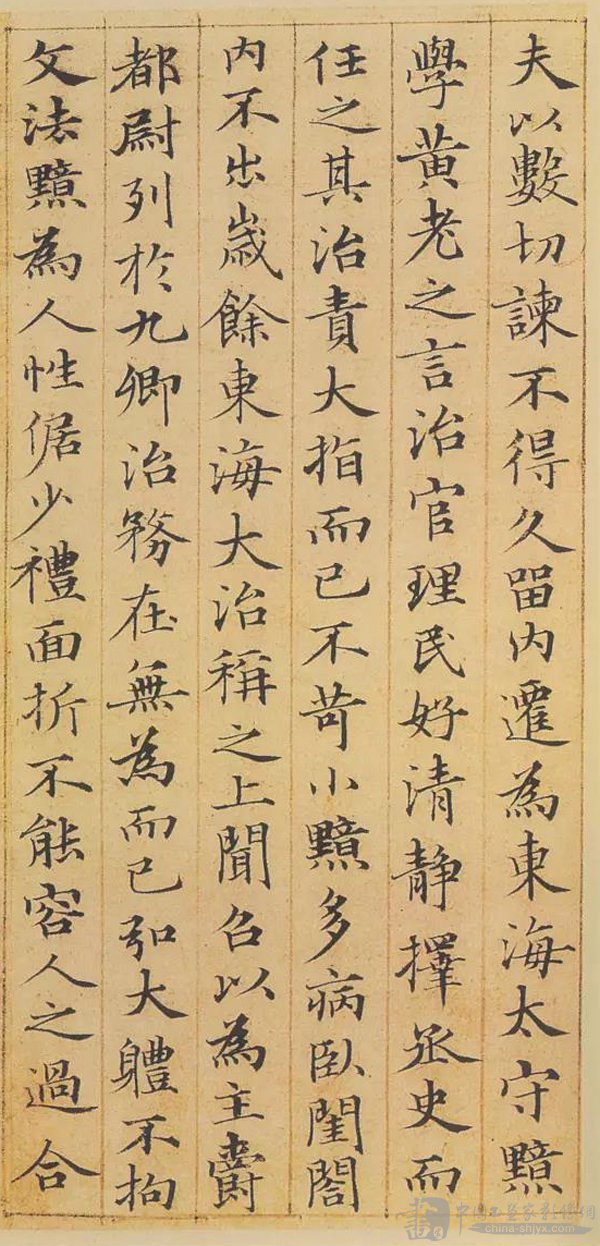 夫以數切諫不得久留內遷為東海太守黯
學黃老之言治官理民好清靜擇丞史而
任之其治責大指而已不苛小黯多病臥閨閤
內不出歲餘東海大治稱之上聞召以為主爵
都尉列於九卿治務在無為而已弘大軆不拘
文法黯為人性倨少禮面折不能容人之過合
china-shjyx.com